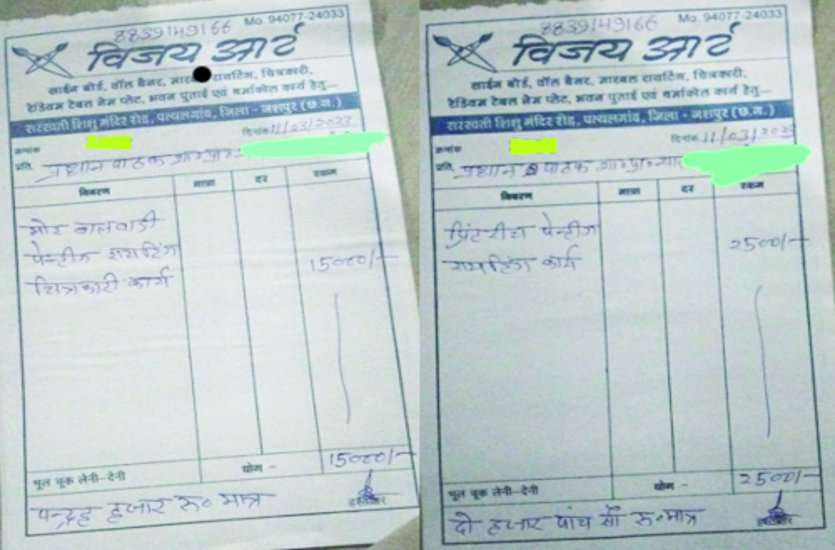 8839149166 Mo. 94077-24033
विजय आर्ट
साईन बोर्ड, वॉल बैनर, मारबल रायटिंग, चित्रकारी,
रेडियम टेबल नेम प्लेट, भवन पुताई एवं थर्माकोल कार्य हेतु—
सरस्वती शिशु मंदिर रोड, पत्थलगांव, जिला - जशपुर (छ.ग.)
क्रमांक दिनांक 11/03/2023
प्रति, प्रधान पाठक
विवरण मात्रा दर रकम
मोर बालवाडी
पेन्टींग रायटिंग 15000/-
चित्रकारी कार्य
15000/-
भूल चूक लेनी-देनी योग -
पन्द्रह हजार रु० मात्र हस्ताक्षर
8839149166 Mo. 94077-24033
विजय आर्ट
साईन बोर्ड, वॉल बैनर, मारबल रायटिंग, चित्रकारी,
रेडियम टेबल नेम प्लेट, भवन पुताई एवं थर्माकोल कार्य हेतु—
सरस्वती शिशु मंदिर रोड, पत्थलगांव, जिला - जशपुर (छ.ग.)
क्रमांक दिनांक 11/03/2023
प्रति, प्रधान पाठक
विवरण मात्रा दर रकम
प्रिंटरीच पेन्टींग 2500/-
रायटिंग कार्य
2500/-
भूल चूक लेनी-देनी योग -
दो हजार पांच सौ रु० मात्र हस्ताक्षर